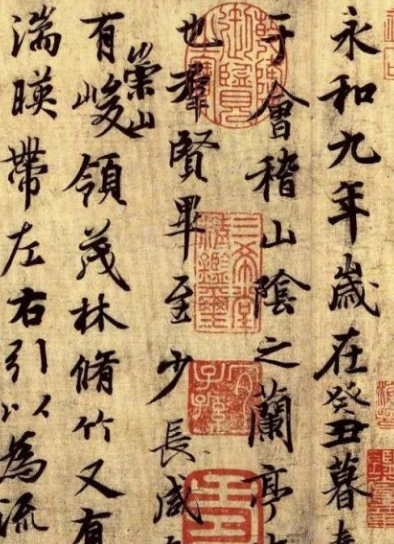 永和九年歲在癸丑暮
于會稽山陰之蘭亭
也羣賢畢至少長咸
有崇山峻領茂林脩竹又有
湍暎帶左右引以為流
三希堂精鑑璽
宜子孫